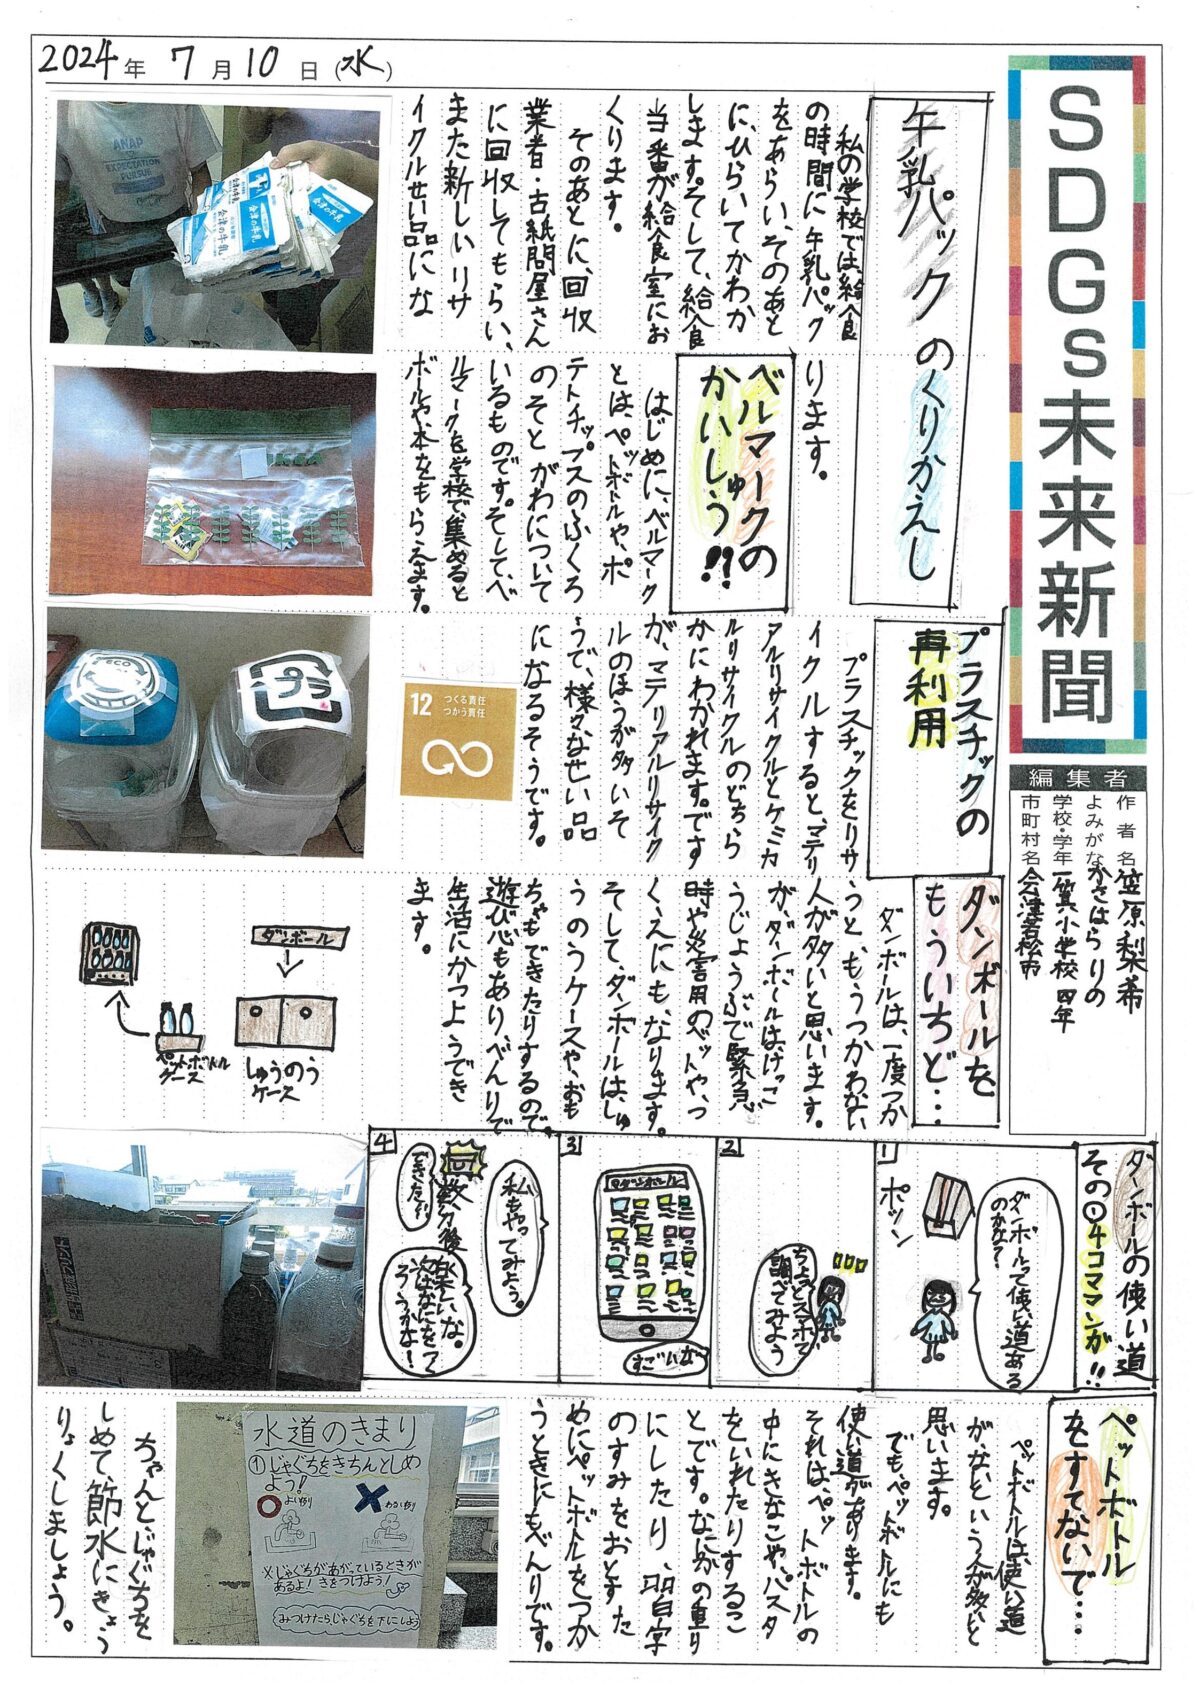 2024年 7月10日(水)
SDGs未来新聞
編集者
作者名 笠原梨希
よみがな かさはらりの
学校・学年 一箕小学校 四年
市町村名 会津若松市
牛乳パックのくりかえし
私の学校では給食
の時間に牛乳パック
をあらい、そのあと
に、ひらいてかわか
します。そして、給食
当番が給食室にお
くります。
そのあとに、回収
業者・古紙問屋さん
に回収してもらい、
また新しいリサ
イクルせい品にな
ります。
ベルマークの
かいしゅう!!
はじめに、ベルマーク
とは、ペットボトルや、ポ
テトチップスのふくろ
のそとがわについて
いるものです。そして、ベ
ルマークを学校で集めると
ボールや、本をもらえます。
プラスチックの
再利用
プラスチックをリサ
イクルすると、マテリ
アルリサイクルとケミカ
ルリサイクルのどちら
かにわかれます。です
が、マテリアルリサイク
ルのほうが多いそ
うで、様々なせい品
になるそうです。
12 つくる責任
つかう責任
ダンボールを
もういちど…
ダンボールは、一度つか
うと、もうつかわない
人が多いと思います。
が、ダンボールは、けっこ
うじょうぶで緊急
時や災害用のベットや、つ
くえにも、なります。
そして、ダンボールは、しゅ
うのうケースや、おも
ちゃもできたりするので、
遊び心もあり、べんりで
生活にかつようでき
ます。
ダンボール
しゅうのう
ケース
ペットボトル
ケース
ダンボールの使い道
その①4コママンガ!!
1
ポツン
ダンボールって使い道ある
のかな?
2
ちょっとスマホで
調べてみよう
3
ダンボール
すごいな
4
私もやってみよう。
数分後
でき房だ
楽しいな。
次はなにをつく
ろうかな!
ペットボトル
をすてないで…
ペットボトルは、使い道
がないという人が多いと
思います。
でもペットボトルにも
使い道があります。
それは、ペットボトルの
中にきなこや、パスタ
をいれたりするこ
とです。なにかの重り
にしたり、習字
のすみをおとすた
めにペットボトルをつか
うときにもべんりです。
水道のきまり
①じゃぐちをきちんとしめ
よう!
よい例
わるい例
※じゃぐちがあがっているときが
あるよ! きをつけよう!
みつけたらじゃぐちを下にしよう
ちゃんとじゃぐちを
しめて、節水にきょう
りょくしましょう。
ANAP
EXPECTATION
PURSUE
会津の牛乳
会津の牛乳
IKEA
ECO
プラ